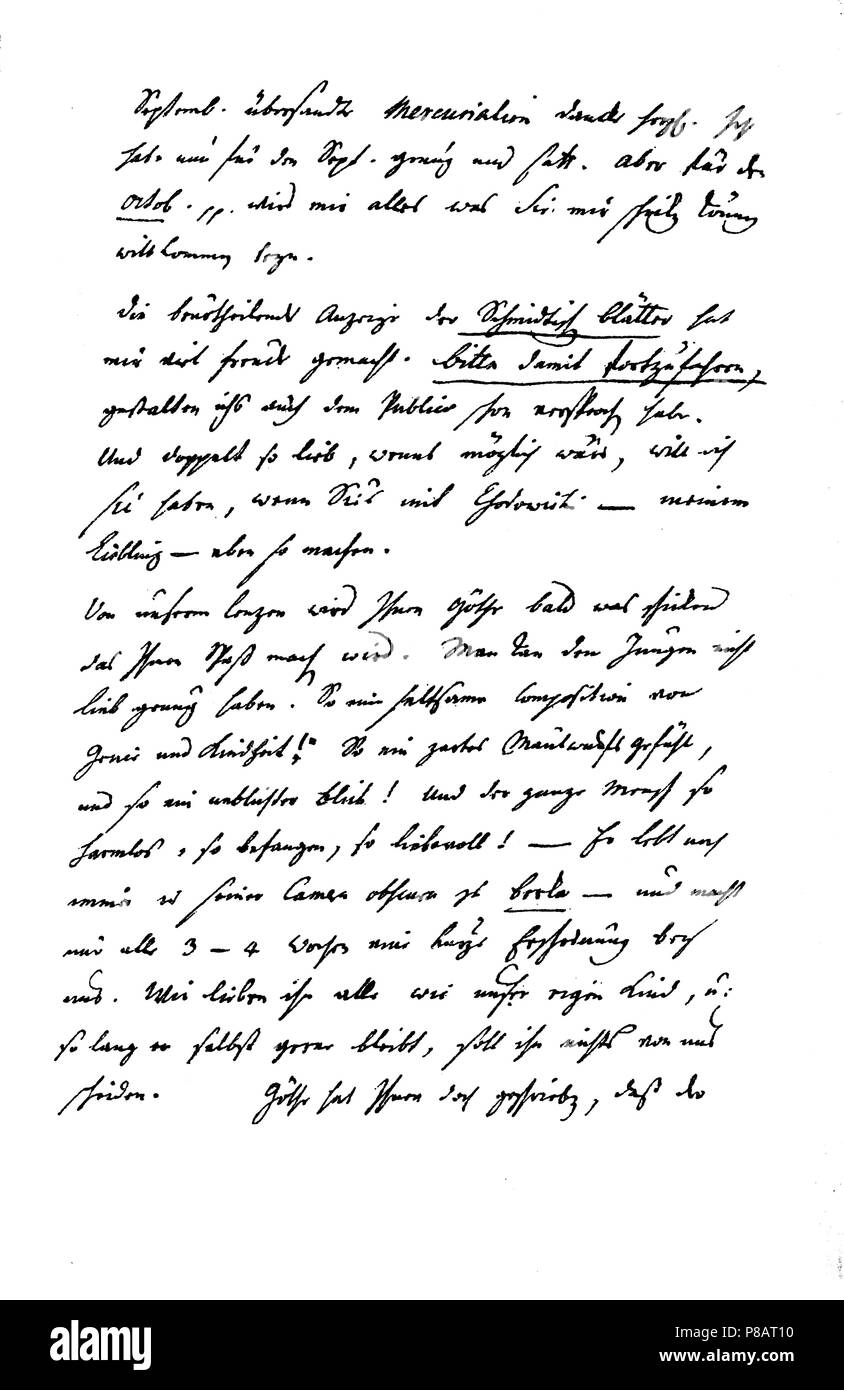 Septemb. übersandte Mercurialien danck herzl. Ich
habe nun für den Sept. genug und satt. Aber für den
Octob. pp. wird mir alles was Sie mir schicken können
willkommen seyn.
Die beurtheilende Anzeige der Schmidtisch blätter hat
mir viel Freude gemacht. bitte damit fortzufahren,
gestalten ichs auch dem Publico schon versproch habe.
Und doppelt so lieb, wenns möglich wäre, will ich
Sie haben, wenn Sie's mit Chodowiecki — meinem
Liebling — eben so machen.
Von unserm Lenzen wird Ihnen Göthe bald was schicken
das Ihnen Spaß mach wird. Man kan den Jungen nicht
lieb genug haben. So eine seltsame Composition von
Genie und Kindheit! So ein zartes Maulwurfsgefühl,
und so ein neblichter Blick! Und der ganze Mensch so
harmlos, so befangen, so liebevoll! — Er lebt noch
immer in seiner Camera obscura zu Berka — und macht
nur alle 3 – 4 Wochen eine kurze Erscheinung bey
uns. Wir lieben ihn alle wie unser eigen Kind, u:
so lang er selbst gerne bleibt, soll ihn nichts von uns
scheiden. Göthe hat Ihnen doch geschrieben, daß der
alamy
a
alamy
Image ID: P8AT10
www.alamy.com